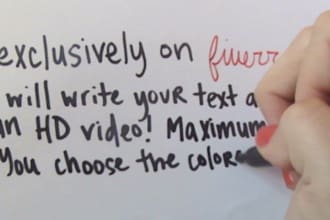 exclusively on fiverr
will write your text a
n HD video! Maximum
You choose the colors